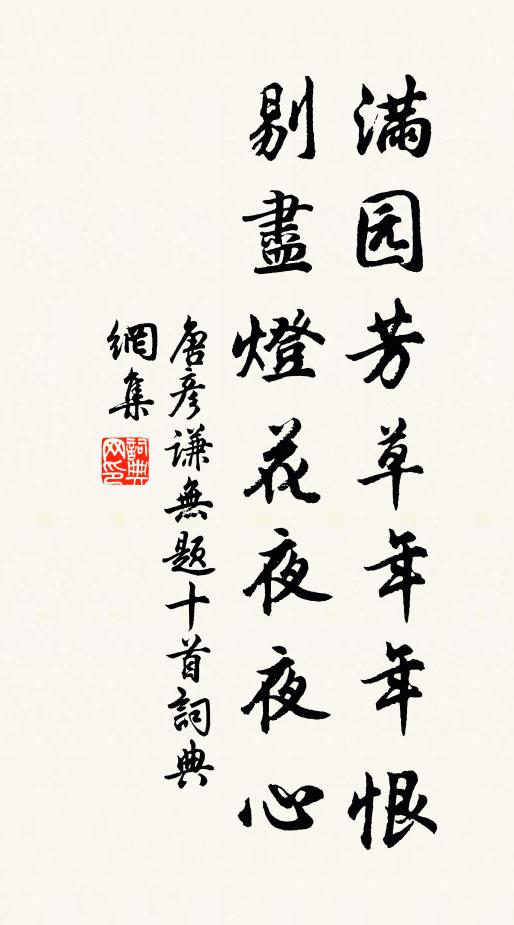 满园芳草年年恨
剔盡燈花夜夜心
唐彦谦無题十首詞典
網集
詞典
网印